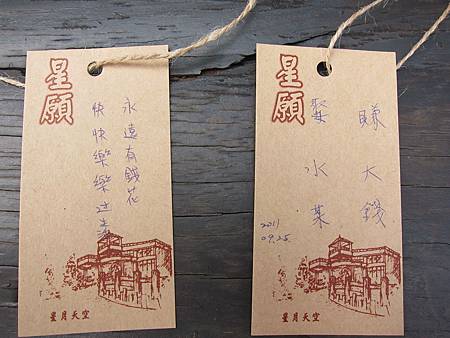 星願
永遠有錢花
快快樂樂過
星月天空
星願
賺大錢
娶水某
2011
09.25
星月天空